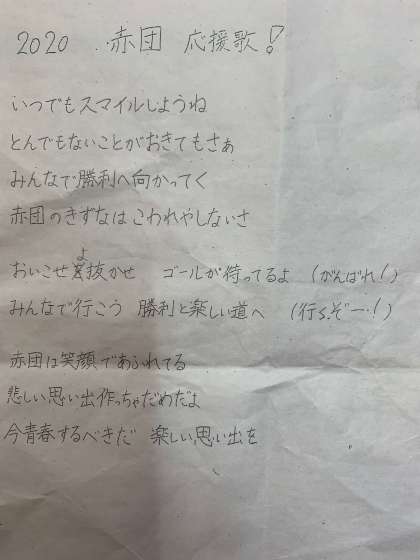 2020 赤団 応援歌!
いつでもスマイルしようね
とんでもないことがおきてもさぁ
みんなで勝利へ向かってく
赤団のきずなはこわれやしないさ
よ
おいこせ 抜かせ ゴールが待ってるよ (がんばれ!)
みんなで行こう 勝利と楽しい道へ (行くぞー!)
赤団は笑顔であふれてる
悲しい思い出作っちゃだめだよ
今青春するべきだ 楽しい思い出を